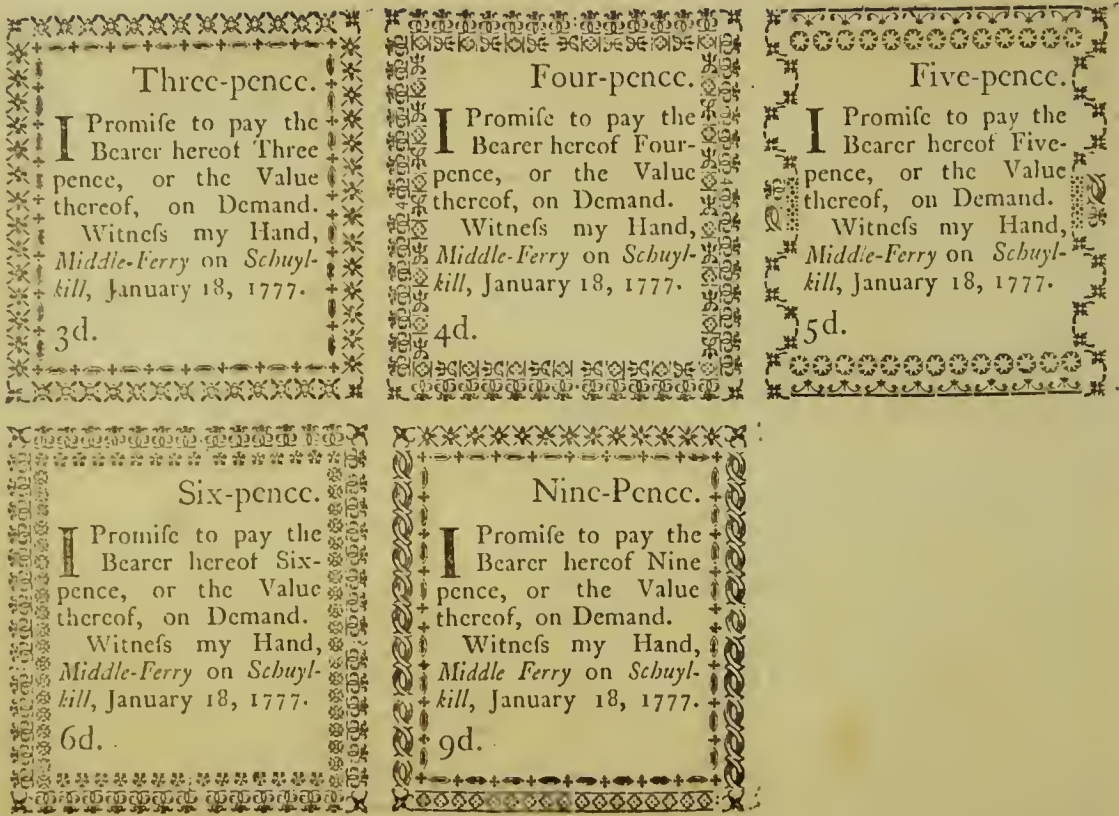 Three-pence.
I Promiſe to pay the
Bearer hereof Three
pence, or the Value
thereof, on Demand.
Witneſs my Hand,
Middle-Ferry on Schuyl-
kill, January 18, 1777.
3d.
Four-pence.
I Promiſe to pay the
Bearer hereof Four-
pence, or the Value
thereof, on Demand.
Witneſs my Hand,
Middle-Ferry on Schuyl-
kill, January 18, 1777.
4d.
Five-pence.
I Promiſe to pay the
Bearer hereof Five-
pence, or the Value
thereof, on Demand.
Witneſs my Hand,
Middle-Ferry on Schuyl-
kill, January 18, 1777.
5d.
Six-pence.
I Promiſe to pay the
Bearer hereof Six-
pence, or the Value
thereof, on Demand.
Witneſs my Hand,
Middle-Ferry on Schuyl-
kill, January 18, 1777.
6d.
Nine-Pence.
I Promiſe to pay the
Bearer hereof Nine
pence, or the Value
thereof, on Demand.
Witneſs my Hand,
Middle Ferry on Schuyl-
kill, January 18, 1777.
9d.